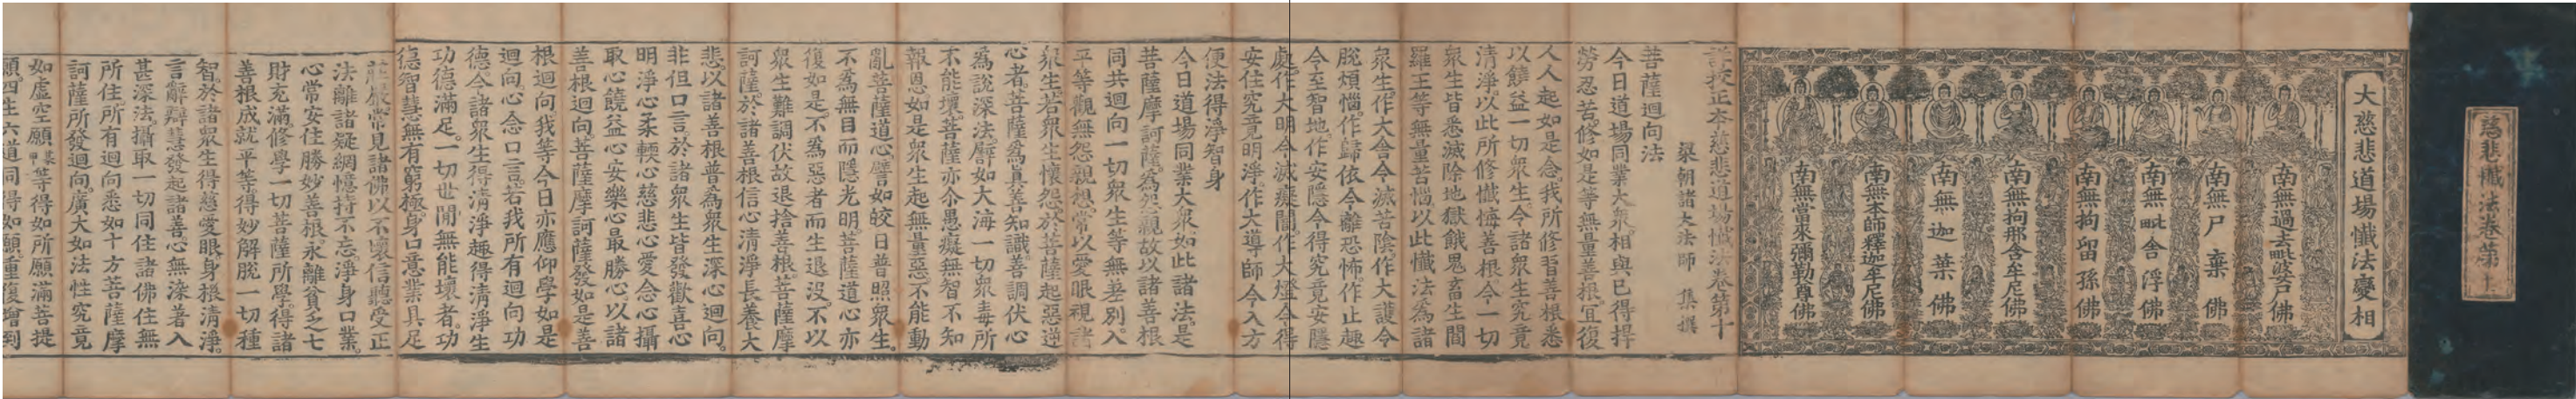 慈悲懺法卷第十
大慈悲道場懺法變相
南無過去毗婆尸佛
南無尸棄佛
南無毗舍浮佛
南無拘留孫佛
南無拘那含牟尼佛
南無迦葉佛
南無本師釋迦牟尼佛
南無當來彌勒尊佛
詳校正本慈悲道場懺法卷第十
梁朝諸大法師 集撰
菩薩迴向法
今日道場同業大衆相與已得捍
勞忍苦修如是等無量善根宜復
人人起如是念我所修習善根悉
以饒益一切衆生令諸衆生究竟
清淨以此所修懺悔善根令一切
衆生皆悉滅除地獄餓鬼畜生閻
羅王等無量苦惱以此懺法爲諸
衆生作大舍令滅苦陰作大護令
脫煩惱作歸依令離恐怖作止趣
令至智地作安隱令得究竟安隱
處作大明令滅癡闇作大燈令得
安住究竟明淨作大導師令入方
便法得淨智身
今日道場同業大衆如此諸法是
菩薩摩訶薩爲怨親故以諸善根
同共迴向一切衆生等無差別入
平等觀無怨親想常以愛眼視諸
衆生若衆生懷怨於菩薩起惡逆
心者菩薩爲真善知識善調伏心
爲說深法譬如大海一切衆毒所
不能壞菩薩亦尒愚癡無智不知
報恩如是衆生起無量惡不能動
亂菩薩道心譬如皎日普照衆生
不爲無目而隱光明菩薩道心亦
復如是不爲惡者而生退沒不以
衆生難調伏故退捨善根菩薩摩
訶薩於諸善根信心清淨長養大
悲以諸善根普爲衆生深心迴向
非但口言於諸衆生皆發歡喜心
明淨心柔輭心慈悲心愛念心攝
取心饒益心安樂心最勝心以諸
善根迴向菩薩摩訶薩發如是善
根迴向我等今日亦應仰學如是
迴向心念口言若我所有迴向功
德令諸衆生得清淨趣得清淨生
功德滿足一切世間無能壞者功
德智慧無有窮極身口意業具足
莊嚴常見諸佛以不壞信聽受正
法離諸疑網憶持不忘淨身口業
心常安住勝妙善根永離貧乏七
財充滿修學一切菩薩所學得諸
善根成就平等得妙解脫一切種
智於諸衆生得慈愛眼身根清淨
言辭辯慧發起諸善心無染著入
甚深法攝取一切同住諸佛住無
所住所有迴向悉如十方菩薩摩
訶薩所發迴向廣大如法性究竟
如虛空願某甲等得如所願滿菩提
願四生六道同得如願重復增到